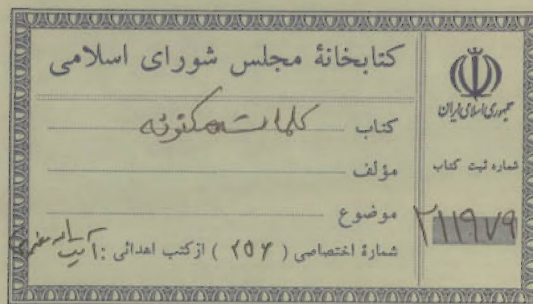 کتابخانهٔ مجلس شورای اسلامی
کتاب کلمات مکنونه
مؤلف
موضوع
شمارهٔ اختصاصی ( ۲۵۴ ) از کتب اهدائی :
جمهوری اسلامی ایران
شماره ثبت کتاب
۲۱۱۹۷۹